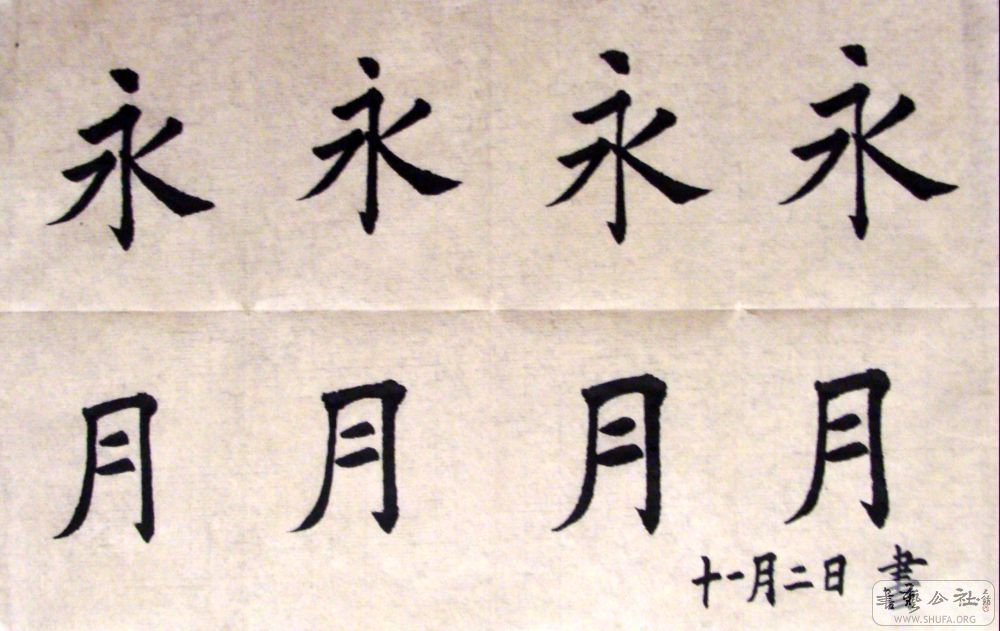 永永永永
月月月月
十一月二日 書
書藝公社
WWW.SHUFA.ORG